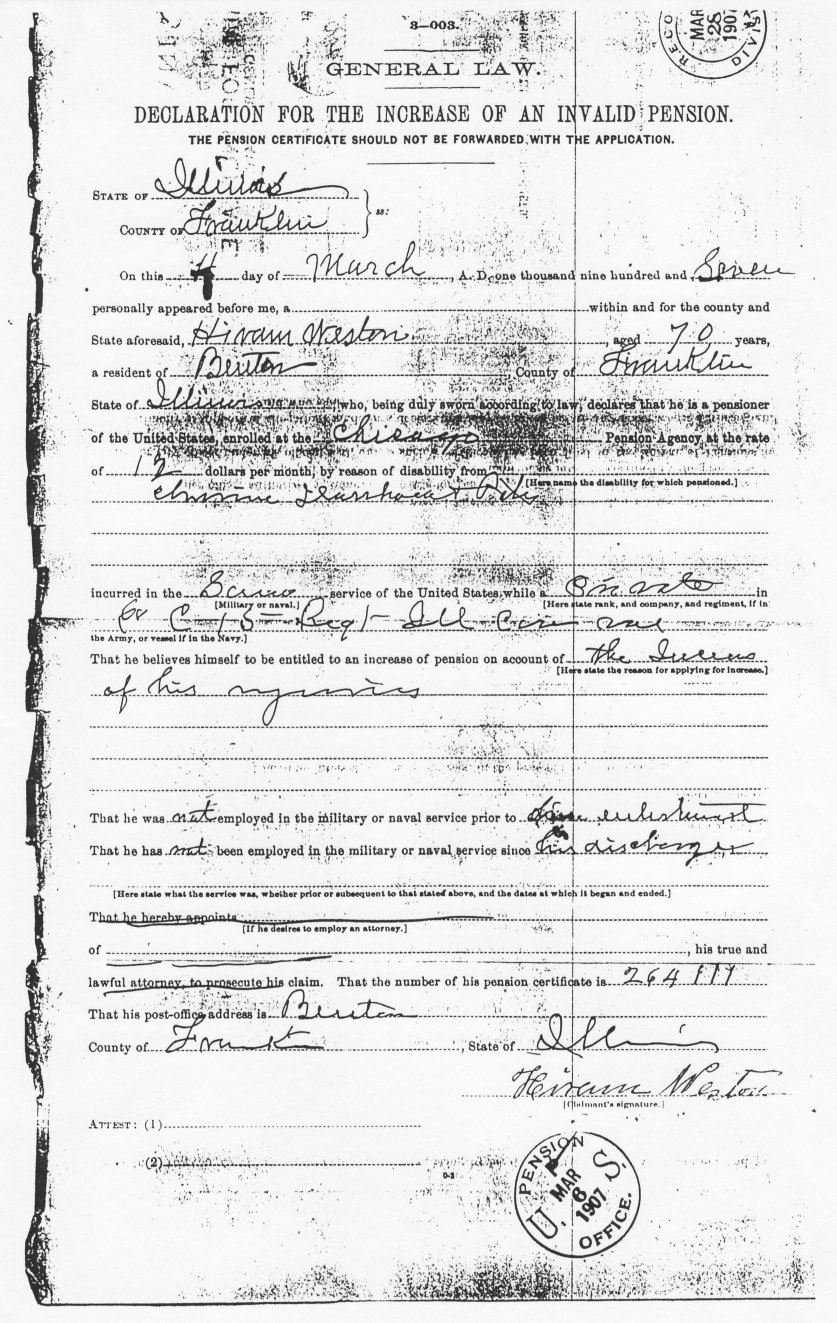 3—003.
RECO
MAR
28
1907
DIVIS
GENERAL LAW.
DECLARATION FOR THE INCREASE OF AN INVALID PENSION.
THE PENSION CERTIFICATE SHOULD NOT BE FORWARDED WITH THE APPLICATION.
STATE OF Illinois
COUNTY OF Franklin ss:
On this 4 day of March, A. D. one thousand nine hundred and Seven
personally appeared before me, a within and for the county and
State aforesaid, Hiram Weston, aged 70 years,
a resident of Benton County of Franklin
State of Illinois, who, being duly sworn according to law, declares that he is a pensioner
of the United States, enrolled at the Chicago Pension Agency at the rate
of 12 dollars per month, by reason of disability from
[Here name the disability for which pensioned.]
Piles
incurred in the service of the United States while a Private in
[Military or naval.] [Here state rank, and company, and regiment, if in
Co C 15 Regt Ill
the Army, or vessel if in the Navy.]
That he believes himself to be entitled to an increase of pension on account of the
[Here state the reason for applying for increase.]
of his
That he was not employed in the military or naval service prior to enlistment
That he has not been employed in the military or naval service since his discharge
[Here state what the service was, whether prior or subsequent to that stated above, and the dates at which it began and ended.]
That he hereby appoints
[If he desires to employ an attorney.]
of , his true and
lawful attorney, to prosecute his claim. That the number of his pension certificate is 264111
That his post-office address is Benton
County of Franklin, State of Illinois
Hiram Weston
[Claimant's signature.]
ATTEST: (1)
(2)
0-2
PENSION
MAR
6
1907
U. S.
OFFICE.